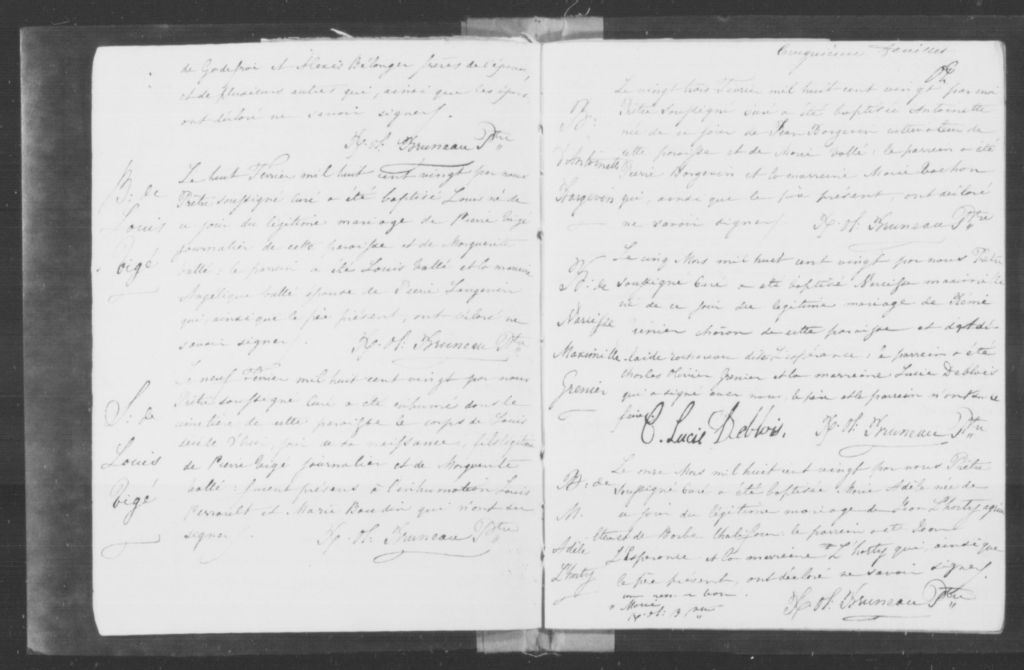 de Godefroi et Alexis Bélanger frères de l'épouse,
et de plusieurs autres qui, ainsi que les époux
ont déclaré ne savoir signer.
Bruneau Ptre
B: de
Louis
Tigé
Le huit Fevrier mil huit cent vingt par nous
Prêtre soussigné curé a été baptisé Louis né de
ce jour du légitime mariage de Pierre Tigé
journalier de cette paroisse et de Marguerite
Vallé: le parrein a été Louis Vallé et la marreine
Angélique Vallé épouse de Pierre Langevin
qui, ainsi que le père présent, ont déclaré ne
savoir signer.
Bruneau Ptre
S: de
Louis
Tigé
Le neuf Fevrier mil huit cent vingt par nous
Prêtre soussigné curé a été inhumé dans le
cimetière de cette paroisse le corps de Louis
décédé d'hier, jour de sa naissance, fils légitime
de Pierre Tigé journalier et de Marguerite
Vallé: furent présens à l'inhumation Louis
Perrault et Marie Baudin qui n'ont su
signer.
Bruneau Ptre
Cinquième
B:
Antoinette
Bargevin
Le vingt trois Fevrier mil huit cent vingt par moi
Prêtre soussigné curé a été baptisée Antoinette
née de ce jour de Jean Bargevin cultivateur de
cette paroisse et de Marie Vallé: le parrein a été
Pierre Bargevin et la marreine Marie Vachon
qui, ainsi que le père présent, ont déclaré
ne savoir signer.
Bruneau Ptre
B: de
Narcisse
Maximille
Grenier
Le cinq Mars mil huit cent vingt par nous Prêtre
soussigné Curé a été baptisé Narcisse
né de ce jour du légitime mariage de
Grenier de cette paroisse et d'Adé-
laide dite L'espérance: le parrein a été
Charles Olivier Grenier et la marreine Lucie Deblois
qui a signé avec nous, le père et le parrein n'ont su ce
faire.
C. Lucie Deblois.
Bruneau Ptre
B: de
M.
Adèle
L'horty
Le onze Mars mil huit cent vingt par nous Prêtre
soussigné Curé a été baptisée Marie Adèle née de
ce jour du légitime mariage de Jean L'horty
et de Barbe: le parrein a été Jean
L'Espérance et la marreine L'horty qui, ainsi que
le père présent, ont déclaré ne savoir signer.
Marie
Bruneau Ptre